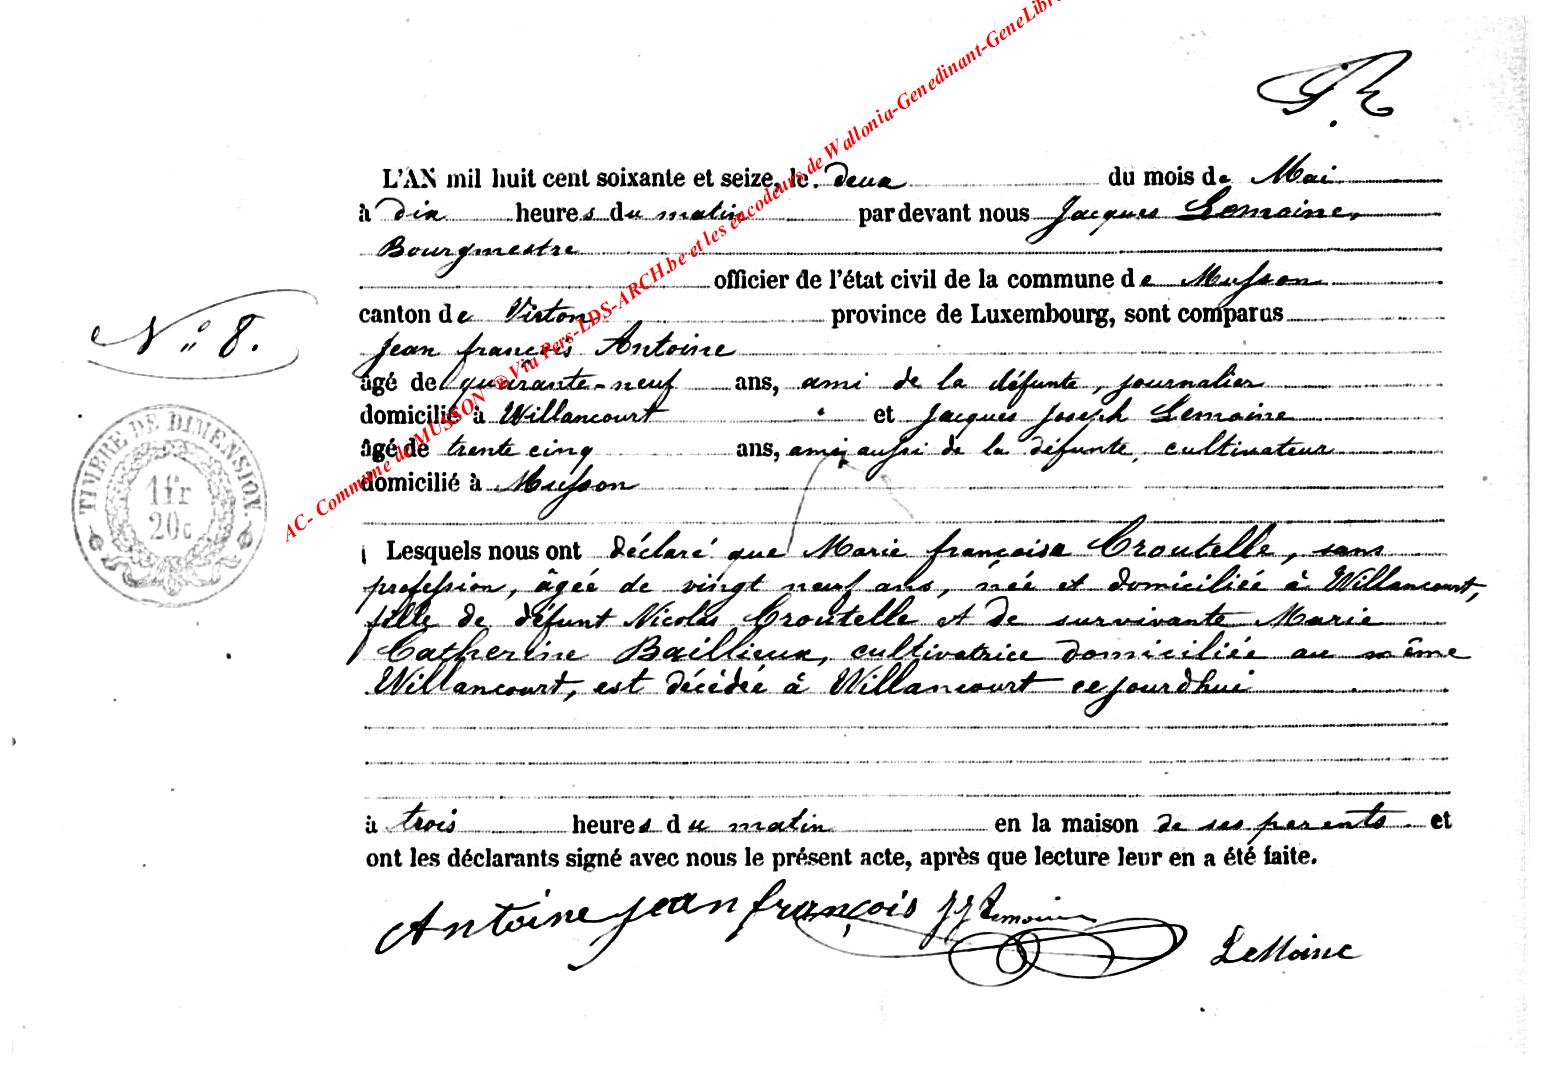 L'AN mil huit cent soixante et seize, le deux du mois de Mai
à dix heures du matin par devant nous Jacques Lemoine,
Bourgmestre
officier de l'état civil de la commune de Musson
canton de Virton province de Luxembourg, sont comparus
Jean françois Antoine
âgé de quarante-neuf ans, ami de la défunte, journalier
domicilié à Willancourt et Jacques Joseph Lemoine
âgé de trente cinq ans, ami aussi de la défunte, cultivateur
domicilié à Musson
N° 8.
TIMBRE DE DIMENSION.
1 fr
20c
Lesquels nous ont déclaré que Marie françoise Croutelle, sans
profession, âgée de vingt neuf ans, née et domiciliée à Willancourt,
fille de défunt Nicolas Croutelle et de survivante Marie
Catherine Baillieux, cultivatrice domiciliée au même
Willancourt, est décédée à Willancourt cejourd'hui
à trois heures du matin en la maison de ses parents et
ont les déclarants signé avec nous le présent acte, après que lecture leur en a été faite.
Antoine jean françois JJ Lemoine
LeMoine
AC- Commune de MUSSON ® Via Pers-LDS-ARCH.be et les encodeurs de Wallonia-Genedinant-GeneLibr